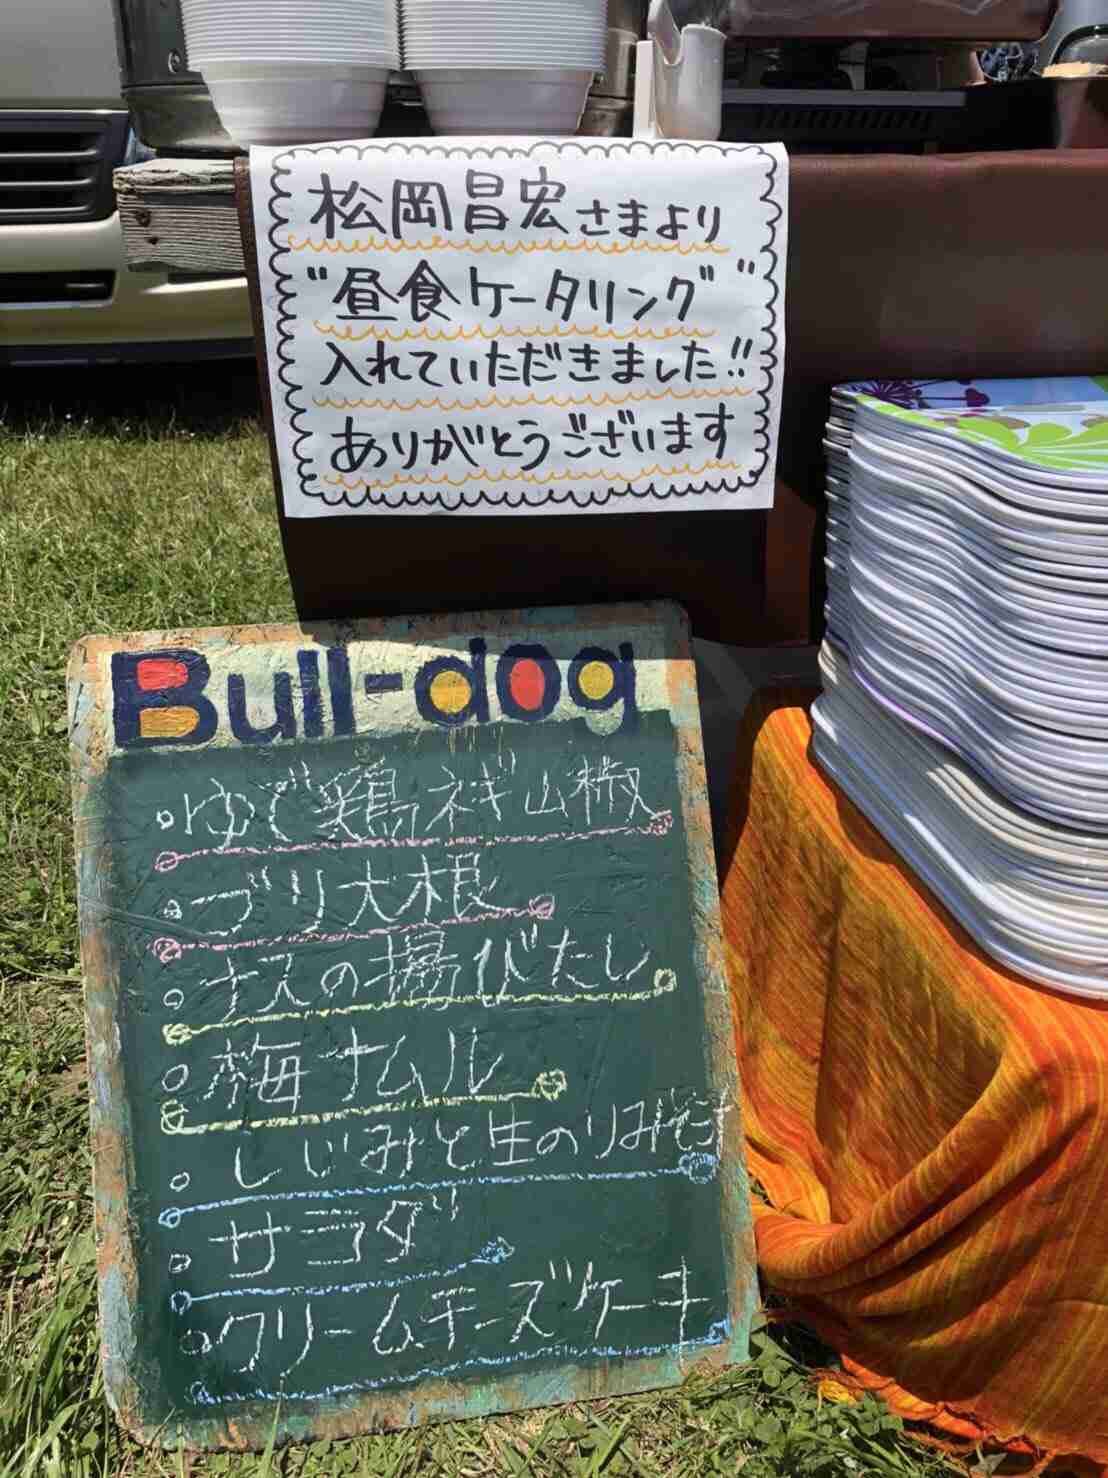 松岡昌宏さまより
"昼食ケータリング"
入れていただきました!!
ありがとうございます
Bull-dog
ゆで鶏ネギ山椒
ブリ大根
ナスの揚びたし
梅ナムル
しじみと生のりみそ汁
サラダ
クリームチーズケーキ